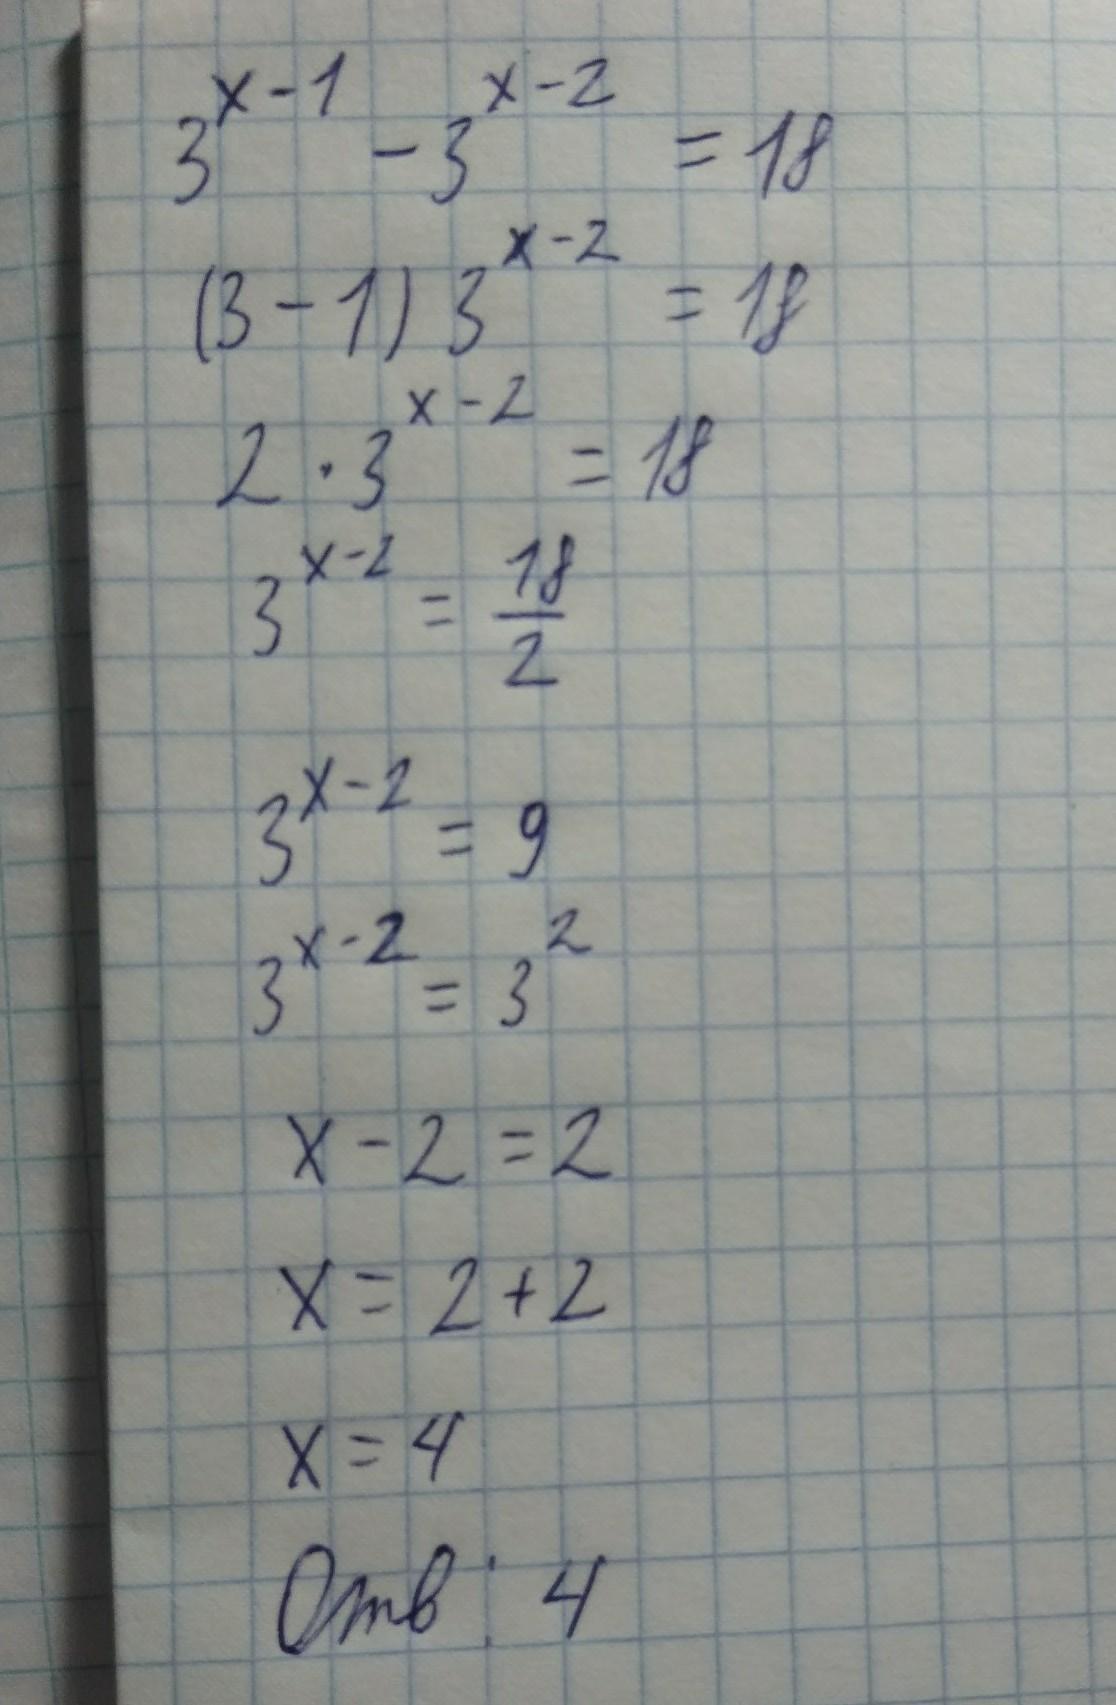 3^{x-1} - 3^{x-2} = 18
(3 - 1) 3^{x-2} = 18
2 · 3^{x-2} = 18
3^{x-2} = \frac{18}{2}
3^{x-2} = 9
3^{x-2} = 3^2
x - 2 = 2
x = 2 + 2
x = 4
Отв: 4